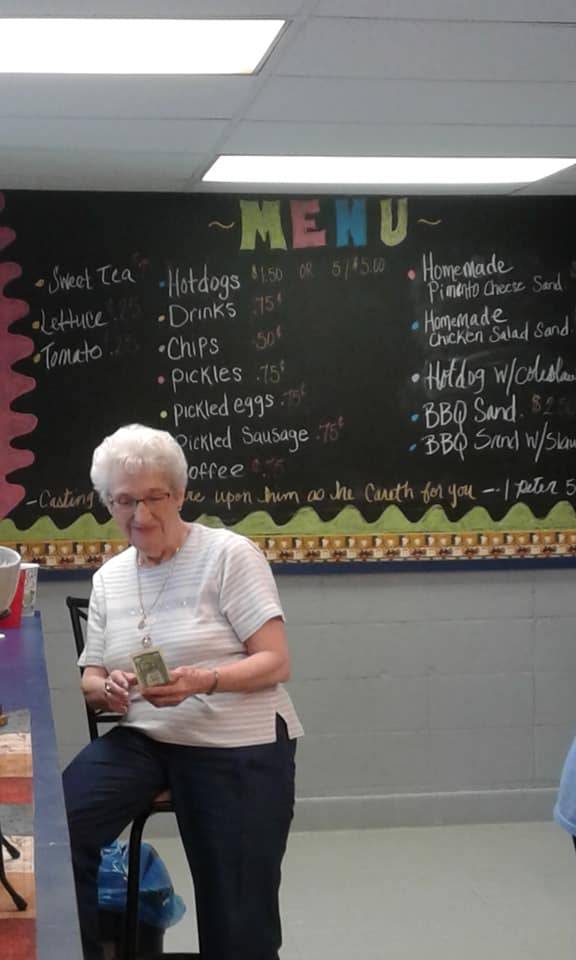 ~ MENU ~
Sweet Tea
Lettuce .25
Tomato .25
Hotdogs $1.50 OR 5/$5.00
Drinks .75¢
Chips .50¢
Pickles .75¢
Pickled eggs .75¢
Pickled Sausage .75¢
offee
Homemade
Pimento Cheese Sand
Homemade
Chicken Salad Sand.
Hotdog w/coleslaw
BBQ Sand.
BBQ Sand w/Slaw
- Casting re upon him as he Careth for you -- 1 Peter 5